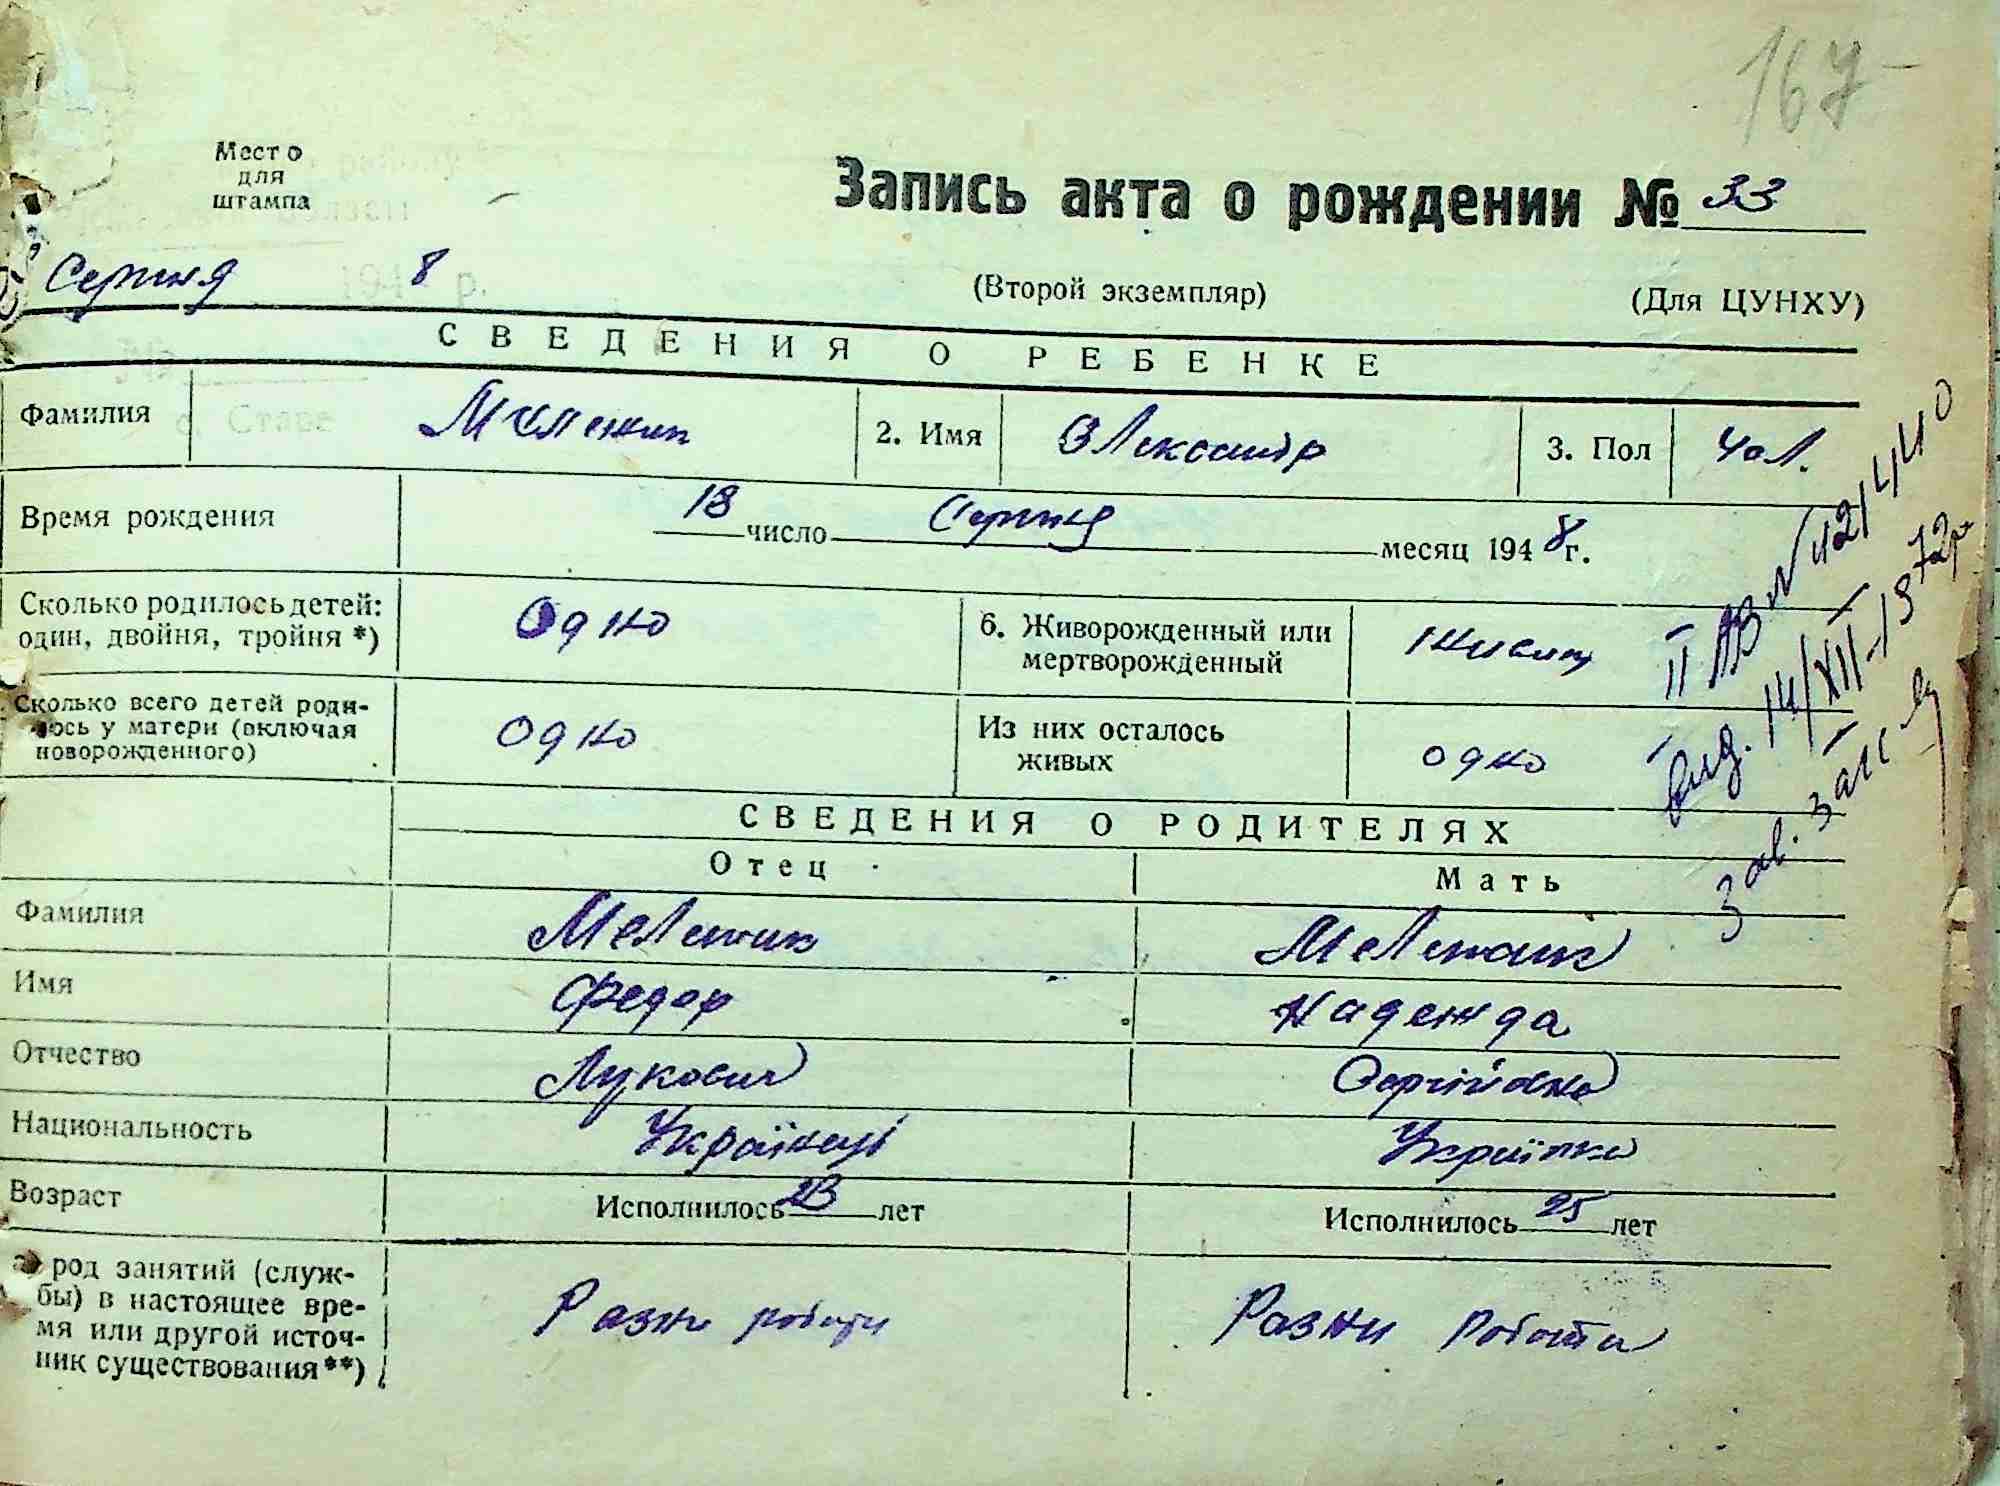 167
Место
для
штампа
Запись акта о рождении № 33
Серпня 1948 р.
(Второй экземпляр) (Для ЦУНХУ)
СВЕДЕНИЯ О РЕБЕНКЕ
Фамилия Мельник 2. Имя Олександр 3. Пол чол.
Время рождения 18 число Серпня месяц 1948 г.
Сколько родилось детей:
один, двойня, тройня *) Одно
6. Живорожденный или
мертворожденный
Сколько всего детей роди-
лось у матери (включая
новорожденного) Одно
Из них осталось
живых одно
II АВ № 421440
вид. 14/XII-1972р.
Зав. загс
СВЕДЕНИЯ О РОДИТЕЛЯХ
Отец Мать
Фамилия Мельник Мельник
Имя Федор Надежда
Отчество Лукович Сергіївна
Национальность Українці Українка
Возраст Исполнилось 23 лет Исполнилось 25 лет
а) род занятий (служ-
бы) в настоящее вре-
мя или другой источ-
ник существования**)
Разни роботи Разни роботи